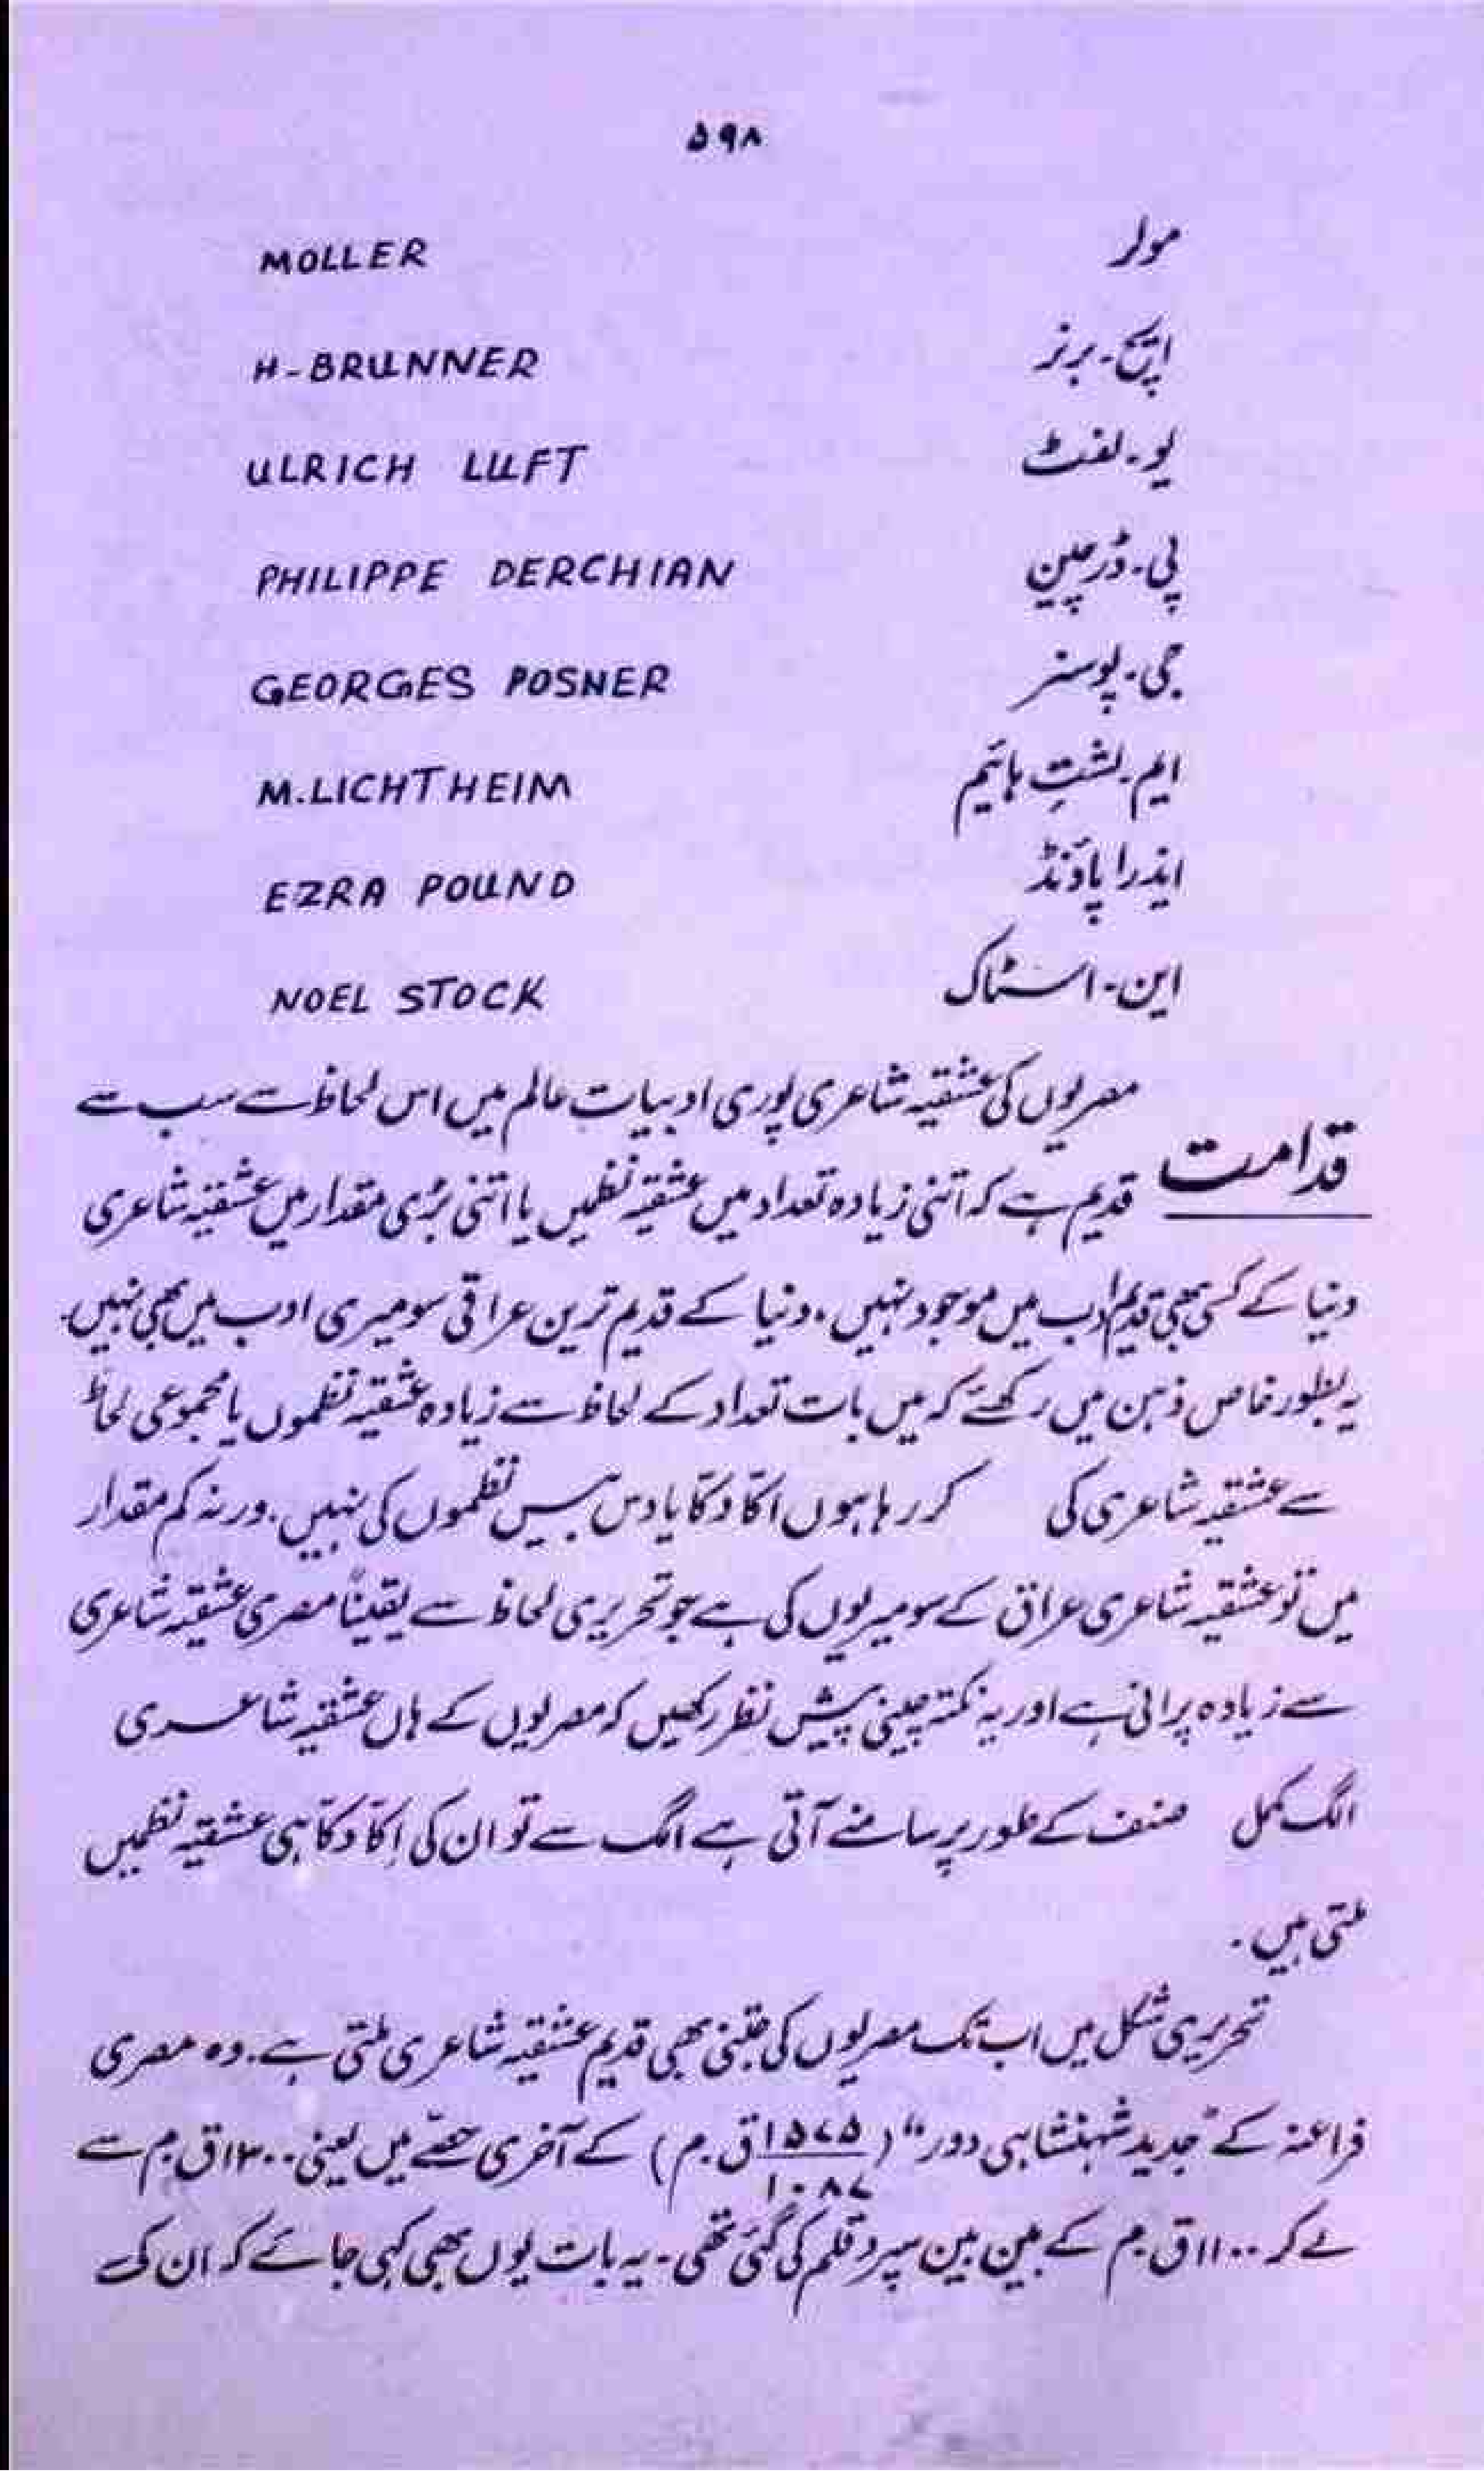 ۵۹۸
مولر MOLLER
ایچ۔ برنر H-BRUNNER
یو۔ لفٹ ULRICH LUFT
پی۔ ڈرچین PHILIPPE DERCHIAN
جی۔ پوسنر GEORGES POSNER
ایم۔ لشتِ ہائیم M.LICHTHEIM
ایذرا پاؤنڈ EZRA POUND
این۔ اسٹاک NOEL STOCK
قدامت
مصریوں کی عشقیہ شاعری پوری ادبیات عالم میں اس لحاظ سے سب سے
قدیم ہے کہ اتنی زیادہ تعداد میں عشقیہ نظمیں یا اتنی بڑی مقدار میں عشقیہ شاعری
دنیا کے کسی بھی قدیم ادب میں موجود نہیں، دنیا کے قدیم ترین عراقی سومیری ادب میں بھی نہیں۔
یہ بطور خاص ذہن میں رکھئے کہ میں بات تعداد کے لحاظ سے زیادہ عشقیہ نظموں یا مجموعی لحاظ
سے عشقیہ شاعری کی کر رہا ہوں اکّا دکّا یا دس بیس نظموں کی نہیں۔ ورنہ کم مقدار
میں تو عشقیہ شاعری عراق کے سومیریوں کی ہے جو تحریری لحاظ سے یقیناً مصری عشقیہ شاعری
سے زیادہ پرانی ہے اور یہ نکتہ چینی پیش نظر رکھیں کہ مصریوں کے ہاں عشقیہ شاعری
الگ مکمل صنف کے طور پر سامنے آتی ہے الگ سے تو ان کی اِکّا دکّا ہی عشقیہ نظمیں
ملتی ہیں۔
تحریری شکل میں اب تک مصریوں کی جتنی بھی قدیم عشقیہ شاعری ملتی ہے۔ وہ مصری
فراعنہ کے "جدید شہنشاہی دور" (۱۵۷۵/۱۰۸۷ ق۔م) کے آخری حصّے میں یعنی ۱۳۰۰ ق۔م سے
لے کر ۱۱۰۰ ق۔م کے بین بین سپرد قلم کی گئی تھی۔ یہ بات یوں بھی کہی جائے کہ ان کی